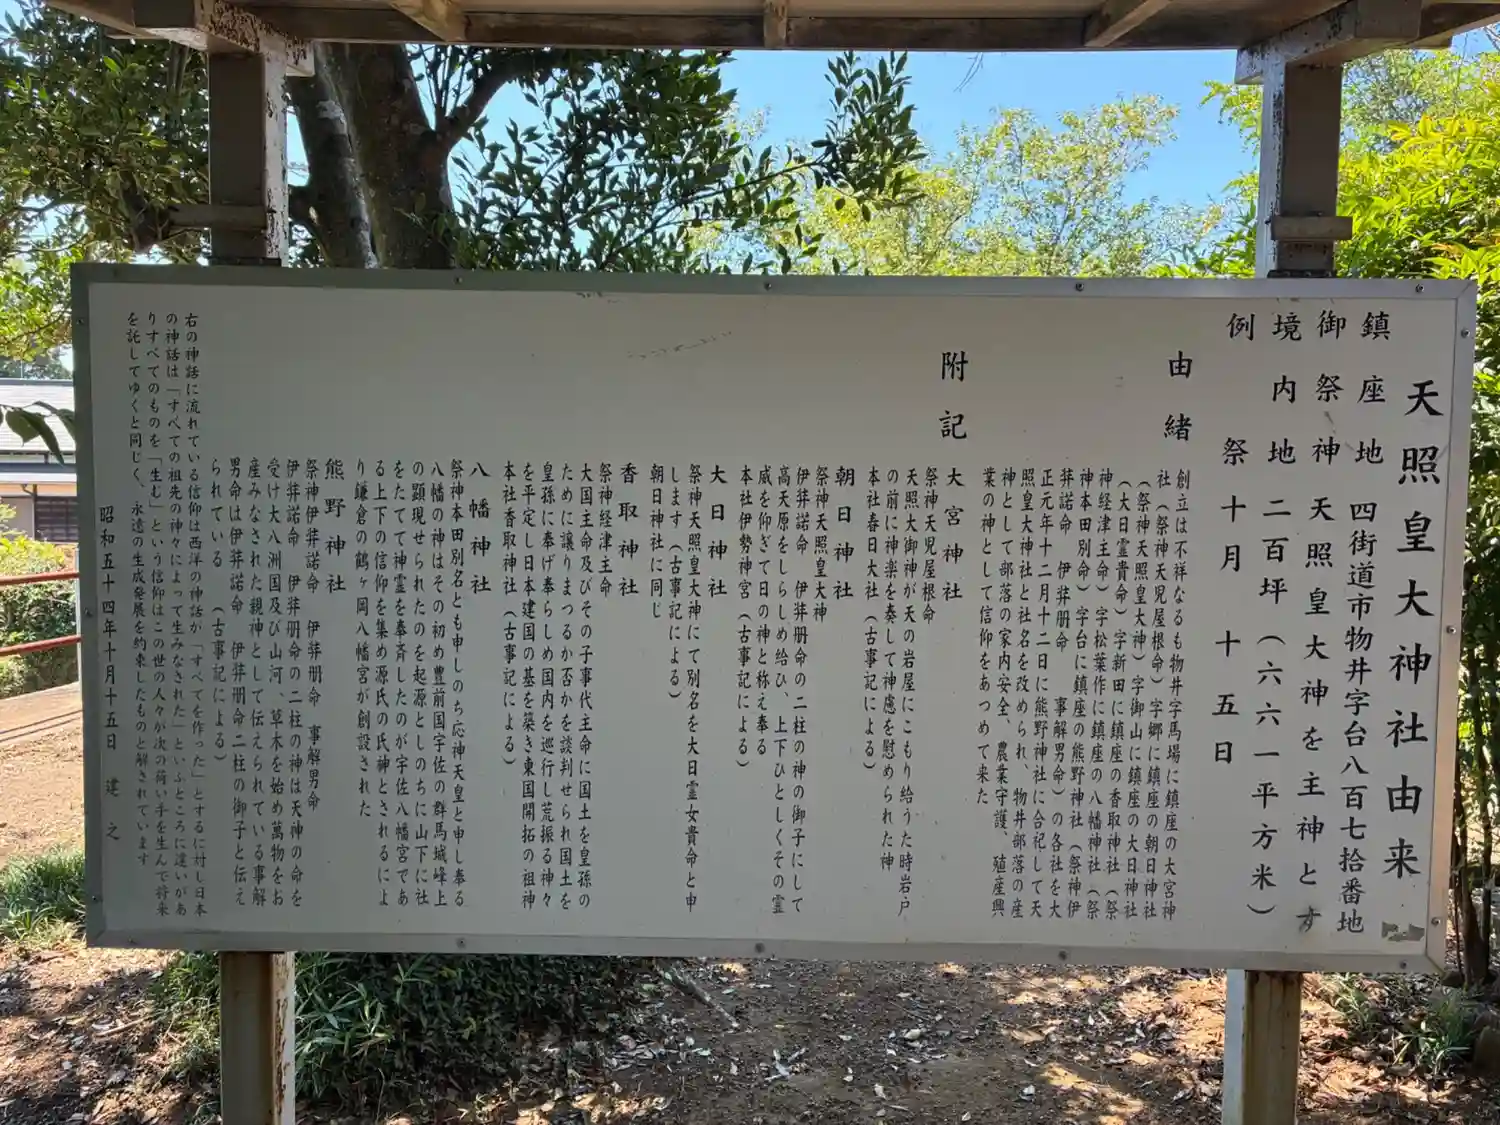 天照皇大神社由来
鎮座地 四街道市物井字台八百七拾番地
御祭神 天照皇大神を主神とす
境内地 二百坪(六六一平方米)
例祭 十月十五日
由緒
創立は不祥なるも物井字馬場に鎮座の大宮神
社(祭神天児屋根命)字郷に鎮座の朝日神社
(祭神天照皇大神)字御山に鎮座の大日神社
(大日霊貴命)字新田に鎮座の香取神社(祭
神経津主命)字松葉作に鎮座の八幡神社(祭
神本田別命)字台に鎮座の熊野神社(祭神伊
弉諾命 伊弉册命 事解男命)の各社を大
正元年十二月十二日に熊野神社に合祀して天
照皇大神社と社名を改められ、物井部落の産
神として部落の家内安全、農業守護、殖産興
業の神として信仰をあつめて来た
附記
大宮神社
祭神天児屋根命
天照大御神が天の岩屋にこもり給うた時岩戸
の前に神楽を奏して神慮を慰められた神
本社春日大社(古事記による)
朝日神社
祭神天照皇大神
伊弉諾命 伊弉册命の二柱の神の御子にして
高天原をしらしめ給ひ、上下ひとしくその霊
威を仰ぎて日の神と称え奉る
本社伊勢神宮(古事記による)
大日神社
祭神天照皇大神にて別名を大日霊女貴命と申
します(古事記による)
朝日神社に同じ
香取神社
祭神経津主命
大国主命及びその子事代主命に国土を皇孫の
ために譲りまつるか否かを談判せられ国土を
皇孫に奉げ奉らしめ国内を巡行し荒振る神々
を平定し日本建国の基を築き東国開拓の祖神
本社香取神社(古事記による)
八幡神社
祭神本田別名とも申しのち応神天皇と申し奉る
八幡の神はその初め豊前国宇佐の群馬城峰上
の顕現せられたのを起源としのちに山下に社
をたてて神霊を奉斉したのが宇佐八幡宮であ
る上下の信仰を集め源氏の氏神とされるによ
り鎌倉の鶴ヶ岡八幡宮が創設された
熊野神社
祭神伊弉諾命 伊弉册命 事解男命
伊弉諾命 伊弉册命の二柱の神は天神の命を
受け大八洲国及び山河、草木を始め萬物をお
産みなされた親神として伝えられている事解
男命は伊弉諾命 伊弉册命二柱の御子と伝え
られている (古事記による)
右の神話に流れている信仰は西洋の神話が「すべてを作った」とするに対し日本
の神話は「すべての祖先の神々によって生みなされた」といふところに違いがあ
りすべてのものを「生む」という信仰はこの世の人々が次の荷い手を生んで将来
を託してゆくと同じく、永遠の生成発展を約束したものと解されています
昭和五十四年十月十五日 建之